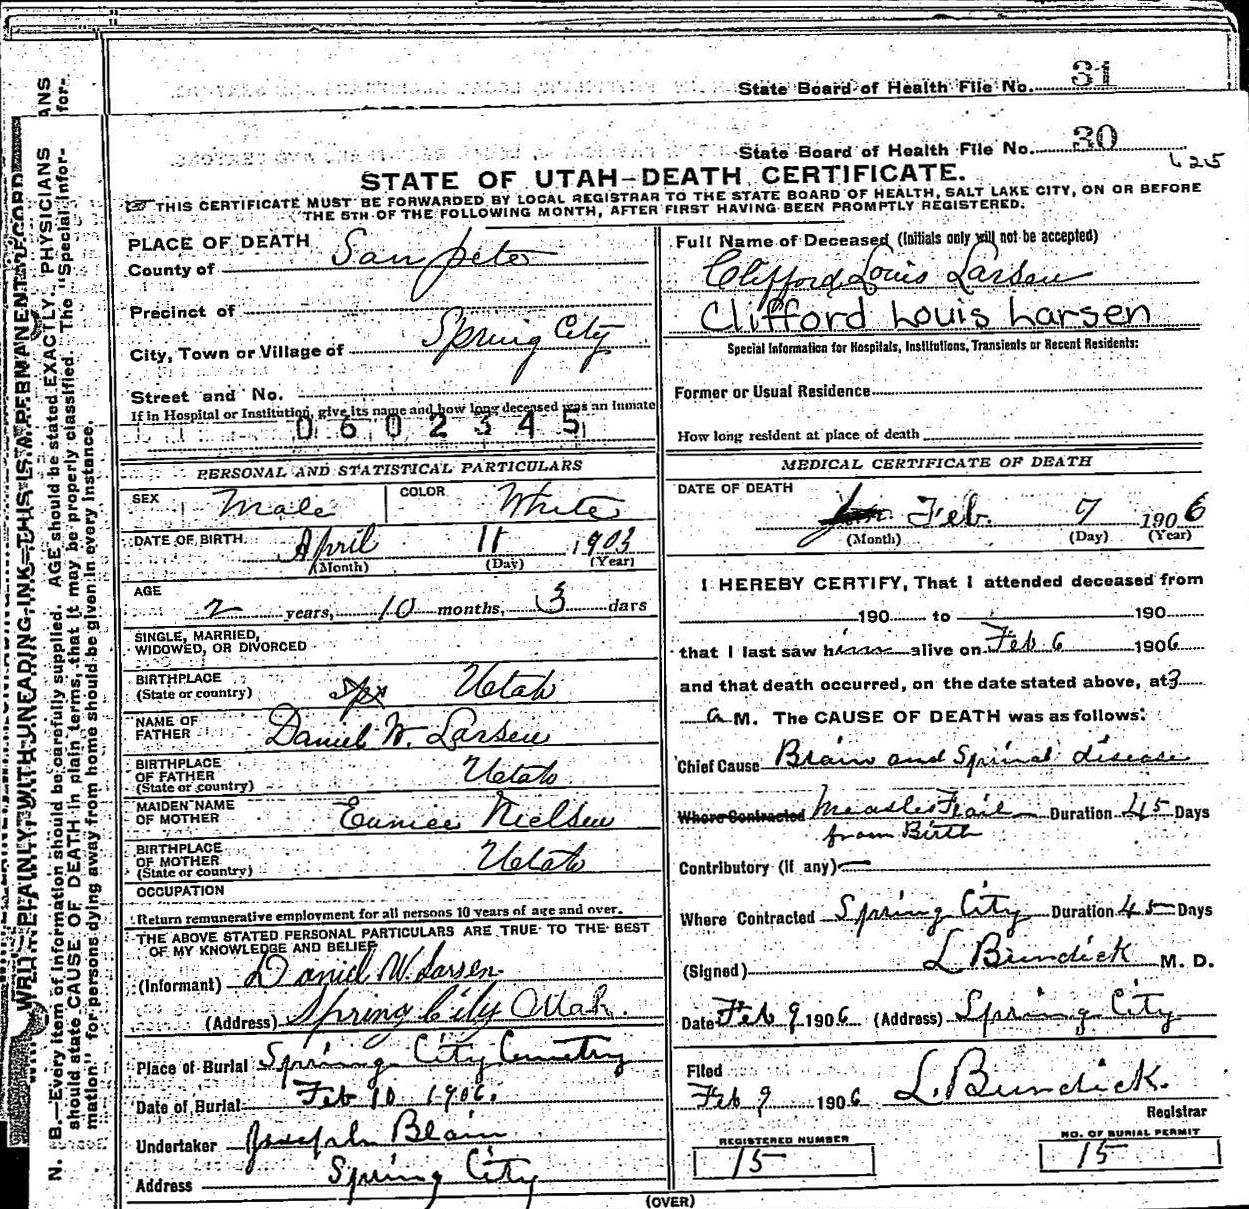 State Board of Health File No. 31
State Board of Health File No. 30
625
STATE OF UTAH—DEATH CERTIFICATE.
THIS CERTIFICATE MUST BE FORWARDED BY LOCAL REGISTRAR TO THE STATE BOARD OF HEALTH, SALT LAKE CITY, ON OR BEFORE
THE 5TH OF THE FOLLOWING MONTH, AFTER FIRST HAVING BEEN PROMPTLY REGISTERED.
PLACE OF DEATH
County of San pete
Precinct of
City, Town or Village of Spring City
Street and No.
If in Hospital or Institution, give its name and how long deceased was an inmate
0602345
PERSONAL AND STATISTICAL PARTICULARS
SEX Male COLOR White
DATE OF BIRTH April 11 1903
(Month) (Day) (Year)
AGE
2 years, 10 months, 3 days
SINGLE, MARRIED,
WIDOWED, OR DIVORCED
BIRTHPLACE
(State or country) Utah
NAME OF
FATHER Daniel W. Larsen
BIRTHPLACE
OF FATHER
(State or country) Utah
MAIDEN NAME
OF MOTHER Eunice Nielsen
BIRTHPLACE
OF MOTHER
(State or country) Utah
OCCUPATION
Return remunerative employment for all persons 10 years of age and over.
THE ABOVE STATED PERSONAL PARTICULARS ARE TRUE TO THE BEST
OF MY KNOWLEDGE AND BELIEF
(Informant) Daniel W. Larsen
(Address) Spring City Utah.
Place of Burial Spring City Cemetry
Date of Burial Feb 10 1906.
Undertaker Joseph Blain
Address Spring City
Full Name of Deceased (Initials only will not be accepted)
Clifford Louis Larsen
Clifford Louis Larsen
Special Information for Hospitals, Institutions, Transients or Recent Residents:
Former or Usual Residence
How long resident at place of death
MEDICAL CERTIFICATE OF DEATH
DATE OF DEATH
Jan. Feb. 7 1906
(Month) (Day) (Year)
I HEREBY CERTIFY, That I attended deceased from
190 to 190
that I last saw him alive on Feb 6 1906
and that death occurred, on the date stated above, at 3
a M. The CAUSE OF DEATH was as follows:
Chief Cause Brain and Spinal disease
Where Contracted Measles Frail Duration 45 Days
from Birth
Contributory (if any)
Where Contracted Spring City Duration 45 Days
(Signed) L Bundick M. D.
Date Feb 9 1906 (Address) Spring City
Filed
Feb 9 1906 L. Bundick.
Registrar
REGISTERED NUMBER
15
NO. OF BURIAL PERMIT
15
(OVER)
WRITE PLAINLY WITH UNFADING INK—THIS IS A PERMANENT RECORD
N. B.—Every item of information should be carefully supplied. AGE should be stated EXACTLY. PHYSICIANS
should state CAUSE OF DEATH in plain terms, that it may be properly classified. The "Special Infor-
mation" for persons dying away from home should be given in every instance.